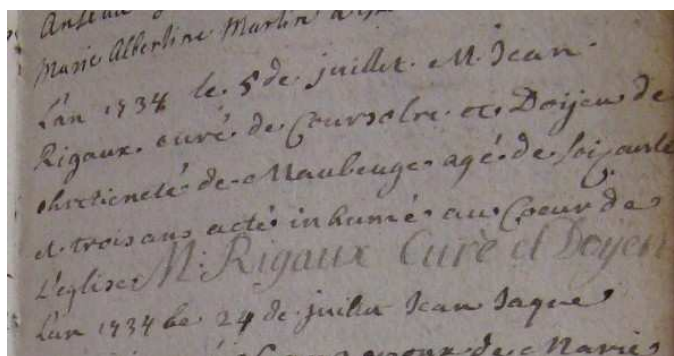 Marie Albertine Martin
L'an 1734 le 5 de juillet M. Jean
Rigaux curé de Coursolre et Doijen de
chretieneté de Maubeuge agé de soixante
et trois ans a eté inhumé au Coeur de
L'eglise M. Rigaux Curè et Doyen
L'an 1734 le 24 de juillet Jean Jaque
de Marie